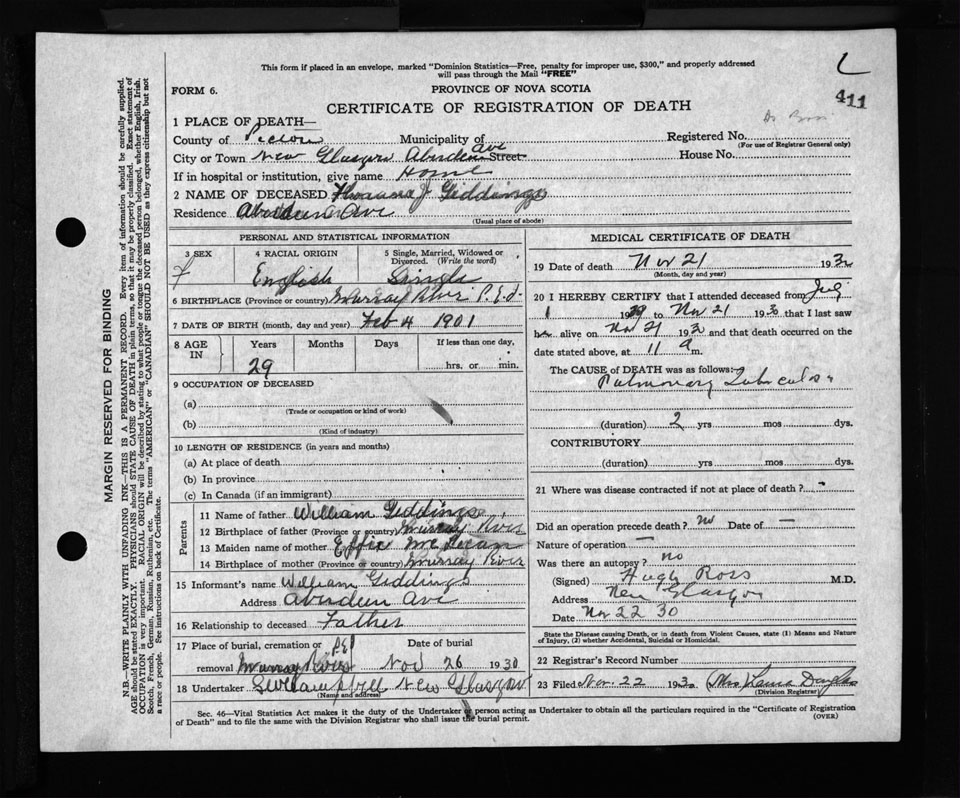 This form if placed in an envelope, marked "Dominion Statistics—Free, penalty for improper use, $300," and properly addressed
will pass through the Mail "FREE"
FORM 6.
PROVINCE OF NOVA SCOTIA
411
CERTIFICATE OF REGISTRATION OF DEATH
1 PLACE OF DEATH—
County of Pictou Municipality of
Registered No.
(For use of Registrar General only)
City or Town New Glasgow Aberdeen Ave Street House No.
If in hospital or institution, give name Home
2 NAME OF DECEASED J Giddings
Residence Aberdeen Ave
(Usual place of abode)
PERSONAL AND STATISTICAL INFORMATION
3 SEX
F
4 RACIAL ORIGIN
English
5 Single, Married, Widowed or
Divorced. (Write the word)
Single
6 BIRTHPLACE (Province or country) Murray River P.E.I.
7 DATE OF BIRTH (month, day and year) Feb 4 1901
8 AGE IN
Years Months Days If less than one day,
29 hrs. or min.
9 OCCUPATION OF DECEASED
(a)
(Trade or occupation or kind of work)
(b)
(Kind of industry)
10 LENGTH OF RESIDENCE (in years and months)
(a) At place of death
(b) In province
(c) In Canada (if an immigrant)
Parents
11 Name of father William Giddings
12 Birthplace of father (Province or country) Murray River
13 Maiden name of mother Effie McLean
14 Birthplace of mother (Province or country) Murray River
15 Informant's name William Giddings
Address Aberdeen Ave
16 Relationship to deceased Father
17 Place of burial, cremation or removal Murray River PEI
Date of burial Nov 26 1930
18 Undertaker Campbell New Glasgow
(Name and address)
MEDICAL CERTIFICATE OF DEATH
19 Date of death Nov 21 1930
(Month, day and year)
20 I HEREBY CERTIFY that I attended deceased from
1 1929 to Nov 21 1930 that I last saw
her alive on Nov 21 1930 and that death occurred on the
date stated above, at 11 a m.
The CAUSE of DEATH was as follows:
Pulmonary Tuberculosis
(duration) 2 yrs mos dys.
CONTRIBUTORY
(duration) yrs mos dys.
21 Where was disease contracted if not at place of death?
Did an operation precede death? no Date of —
Nature of operation —
Was there an autopsy? no
(Signed) Hugh Ross M.D.
Address New Glasgow
Date Nov 22 30
State the Disease causing Death, or in death from Violent Causes, state (1) Means and Nature
of Injury, (2) whether Accidental, Suicidal or Homicidal.
22 Registrar's Record Number
23 Filed Nov. 22 1930 Mrs Laura Douglas
(Division Registrar)
Sec. 46—Vital Statistics Act makes it the duty of the Undertaker or person acting as Undertaker to obtain all the particulars required in the "Certificate of Registration
of Death" and to file the same with the Division Registrar who shall issue the burial permit.
(OVER)
MARGIN RESERVED FOR BINDING
N.B.—WRITE PLAINLY WITH UNFADING INK—THIS IS A PERMANENT RECORD. Every item of information should be carefully supplied.
AGE should be stated EXACTLY. PHYSICIANS should STATE CAUSE OF DEATH in plain terms, so that it may be properly classified. Exact statement of
OCCUPATION is very important. RACIAL ORIGIN will be described by stating to what people or tongue the deceased person belonged, whether English, Irish,
Scotch, French, German, Russian, Ruthenian, etc. The terms "AMERICAN" or "CANADIAN" SHOULD NOT BE USED as they express citizenship but not
a race or people. See instructions on back of Certificate.